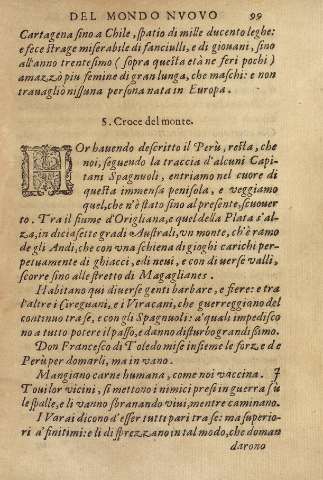 DEL MONDO NVOVO 99
Cartagena sino a Chile, spatio di mille ducento leghe:
e fece strage miserabile di fanciulli, e di giouani, sino
all'anno trentesimo (sopra questa età ne feri pochi)
amazzò piu femine di gran lunga, che maschi: e non
trauagliò nissuna persona nata in Europa.
S. Croce del monte.
Or hauendo descritto il Perù, resta, che
noi, seguendo la traccia d'alcuni Capi-
tani Spagnuoli, entriamo nel cuore di
questa immensa penisola, e veggiamo
quel, che n'è stato sino al presente, scouer
to. Tra il fiume d'Origliana, e quel della Plata s'al-
za, in diciasette gradi Australi, vn monte, ch'è ramo
de gli Andi, che con vna schiena di gioghi carichi per-
petuamente di ghiacci, e di neui, e con diuerse valli,
scorre sino alle stretto di Magaglianes.
Habitano quì diuerse genti barbare, e fiere: e tra
l'altre i Cireguani, e i Viracani, che guerreggiano del
continuo tra se, e con gli Spagnuoli: a' quali impedisco
no a tutto potere il passo, e danno disturbo grandissimo.
Don Francesco di Toledo mise insieme le forze de
Perù per domarli, ma in vano.
Mangiano carne humana, come noi vaccina. I
Toui lor vicini, si mettono i nimici presi in guerra sù
le spalle, e li vanno sbranando viui, mentre caminano.
I Varai dicono d'esser tutti pari tra se: ma superio-
ri a' finitimi: e li disprezzano in tal modo, che doman
darono